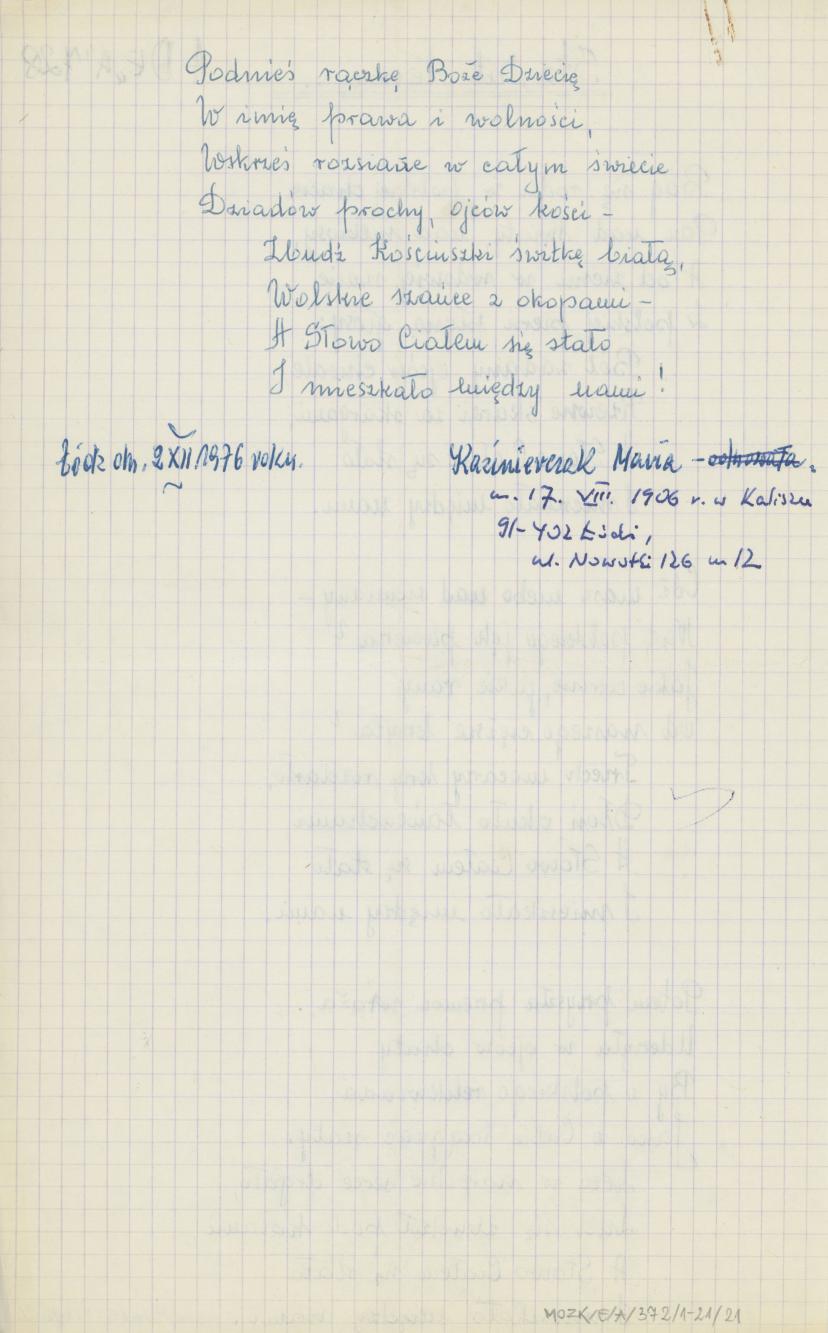 Podnieś rączkę Boże Dziecię
W imię prawa i wolności,
Wskrześ rozsiane w całym świecie
Dziadów prochy, ojców kości –
Zbudź Kościuszki świtkę białą,
Wolskie szańce z okopami –
A Słowo Ciałem się stało
I mieszkało między nami!
Łódź dn. 2 XII 1976 roku. Kaźmierczak Maria –
ur. 17. VIII. 1906 r. w Kaliszu
91-402 Łódź,
ul. Nowotki 126 m 12
MOZK/E/A/372/1-21/21